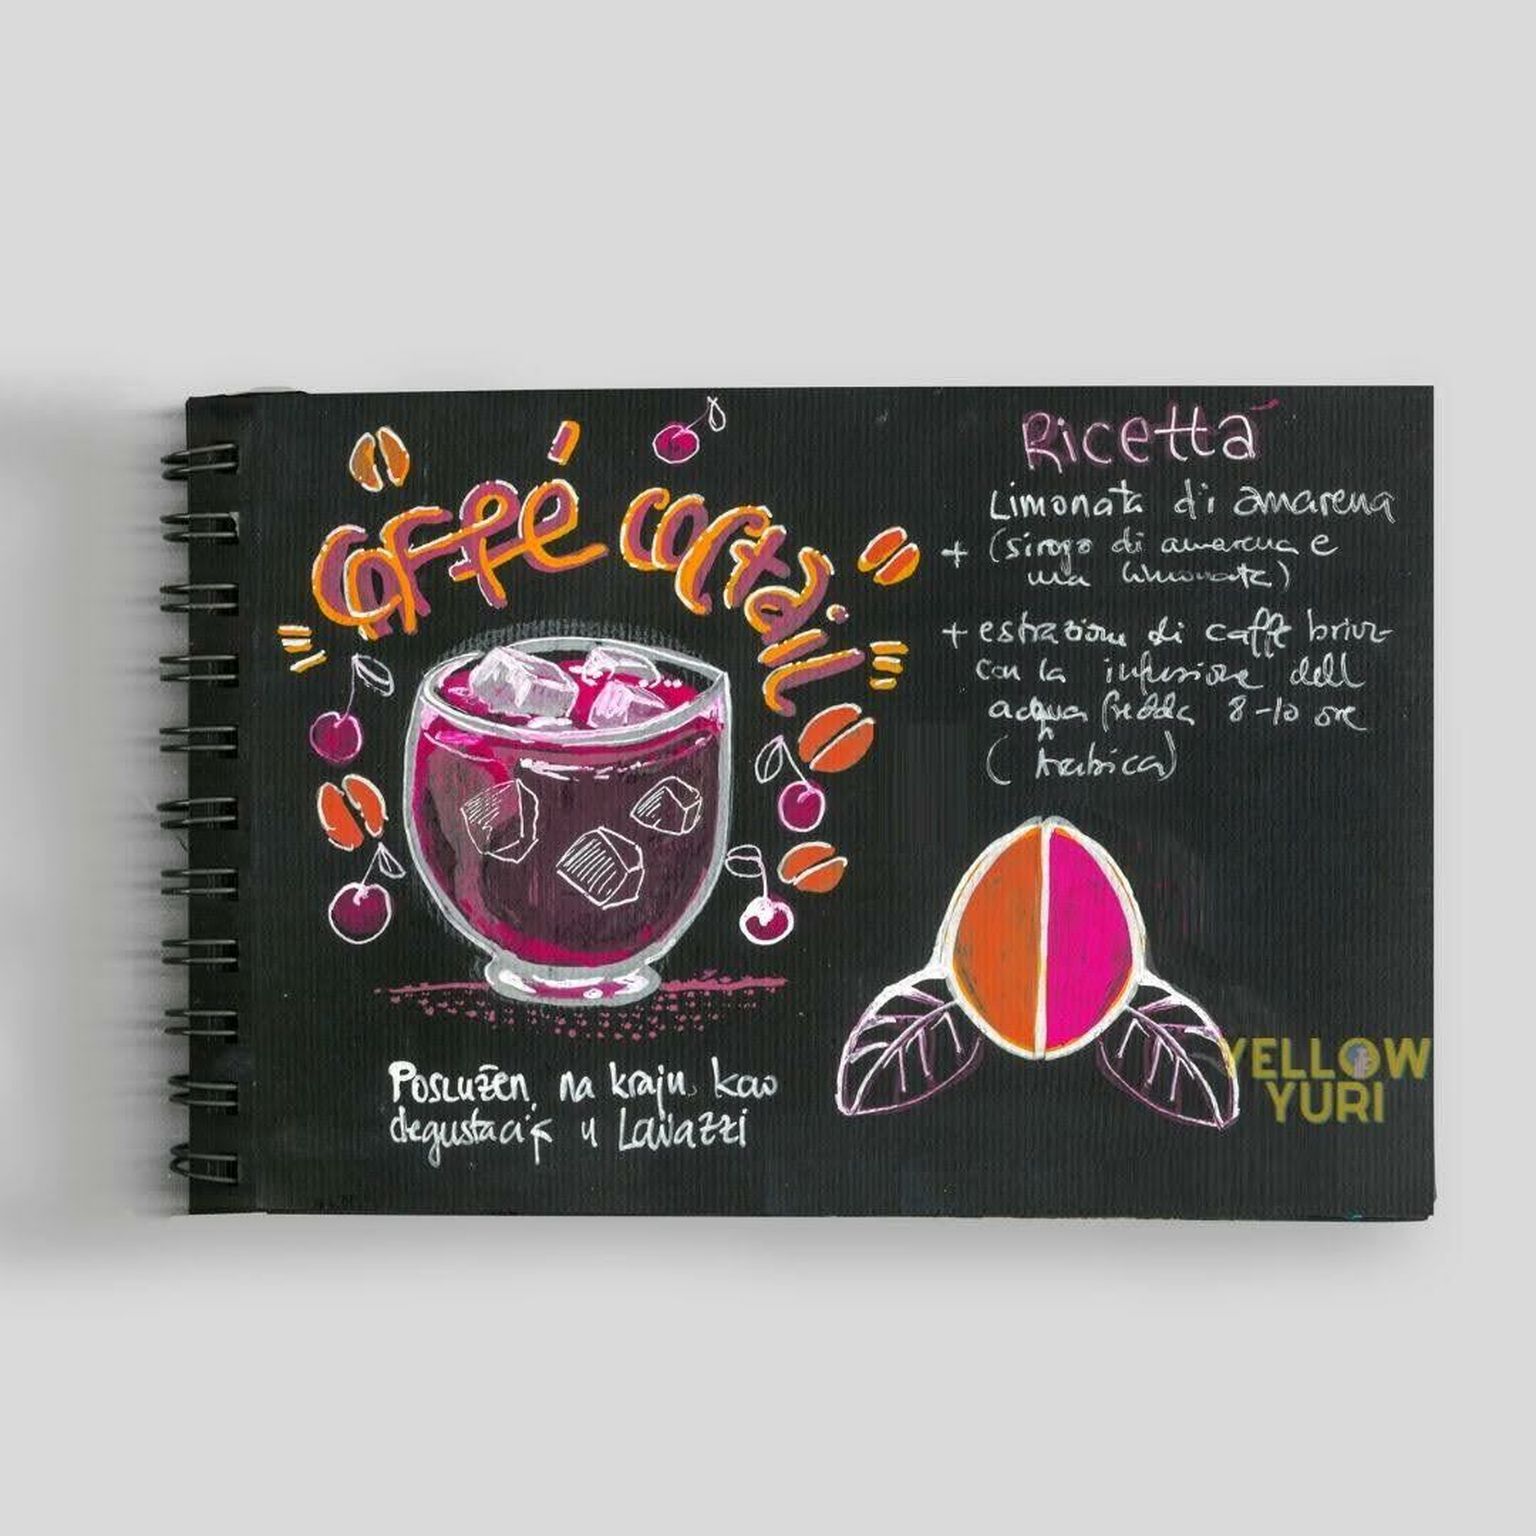 Caffé coctail
Ricetta
Limonata di amarena
+ (siropo di amarena e
una limonata)
+ estrazione di caffè
con la infusione dell
acqua fredda 8-10 ore
(Arabica)
Poslužen na kraju kao
degustacija u Lavazzi
YELLOW
YURI